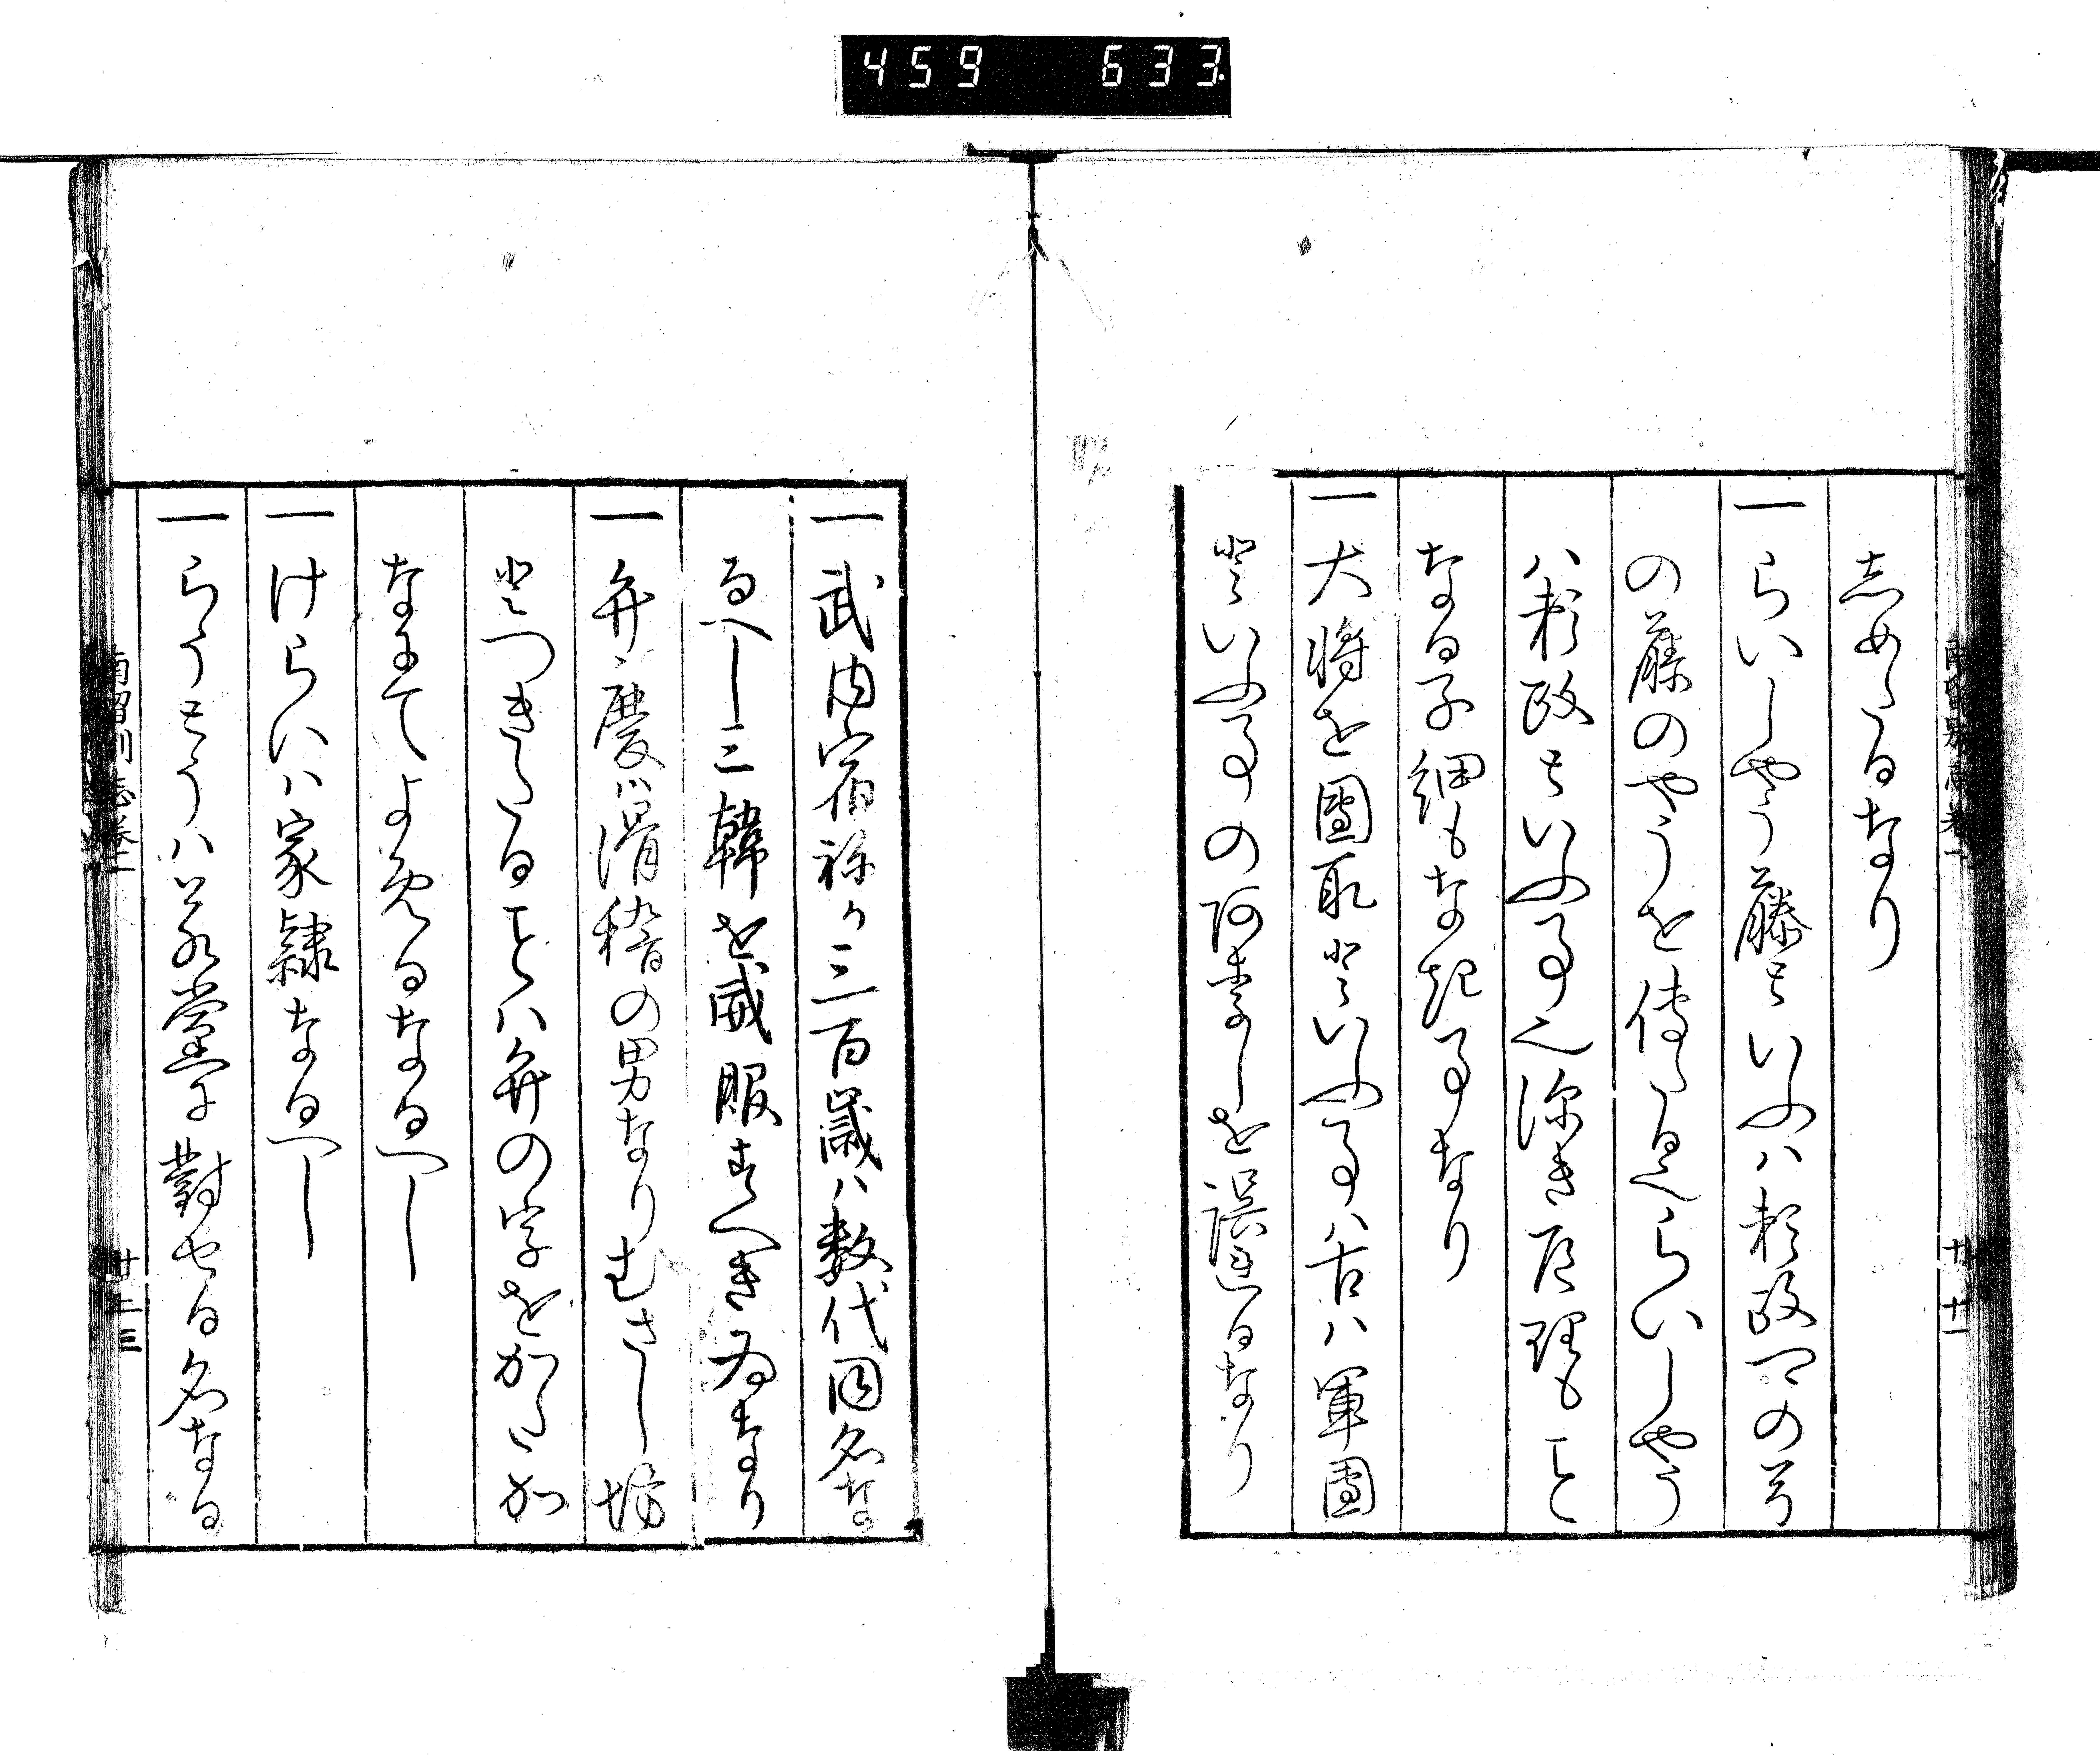 459 633
志めたるなり
一らいしやう藤といふハ頼政卿の号
の藤のやうを傳たるをらいしやう
ハ頼政といふ事之深き道理もこと
なる子細もなき事なり
一大将を團取といふ事ハ古ハ軍團
といふ事の阿まりしを誤れるなり
一武内宿祢か三百歳ハ数代同名な
るへし三韓を威服すへき為なり
一弁慶ハ滑稽の男なりむさし坊
とつきたることハ弁の字をかたか
なにてよめるなるへし
一けらいハ家隷なるへし
一らうとうハ若黨に對せる名なる
南留別志巻二
廿二三